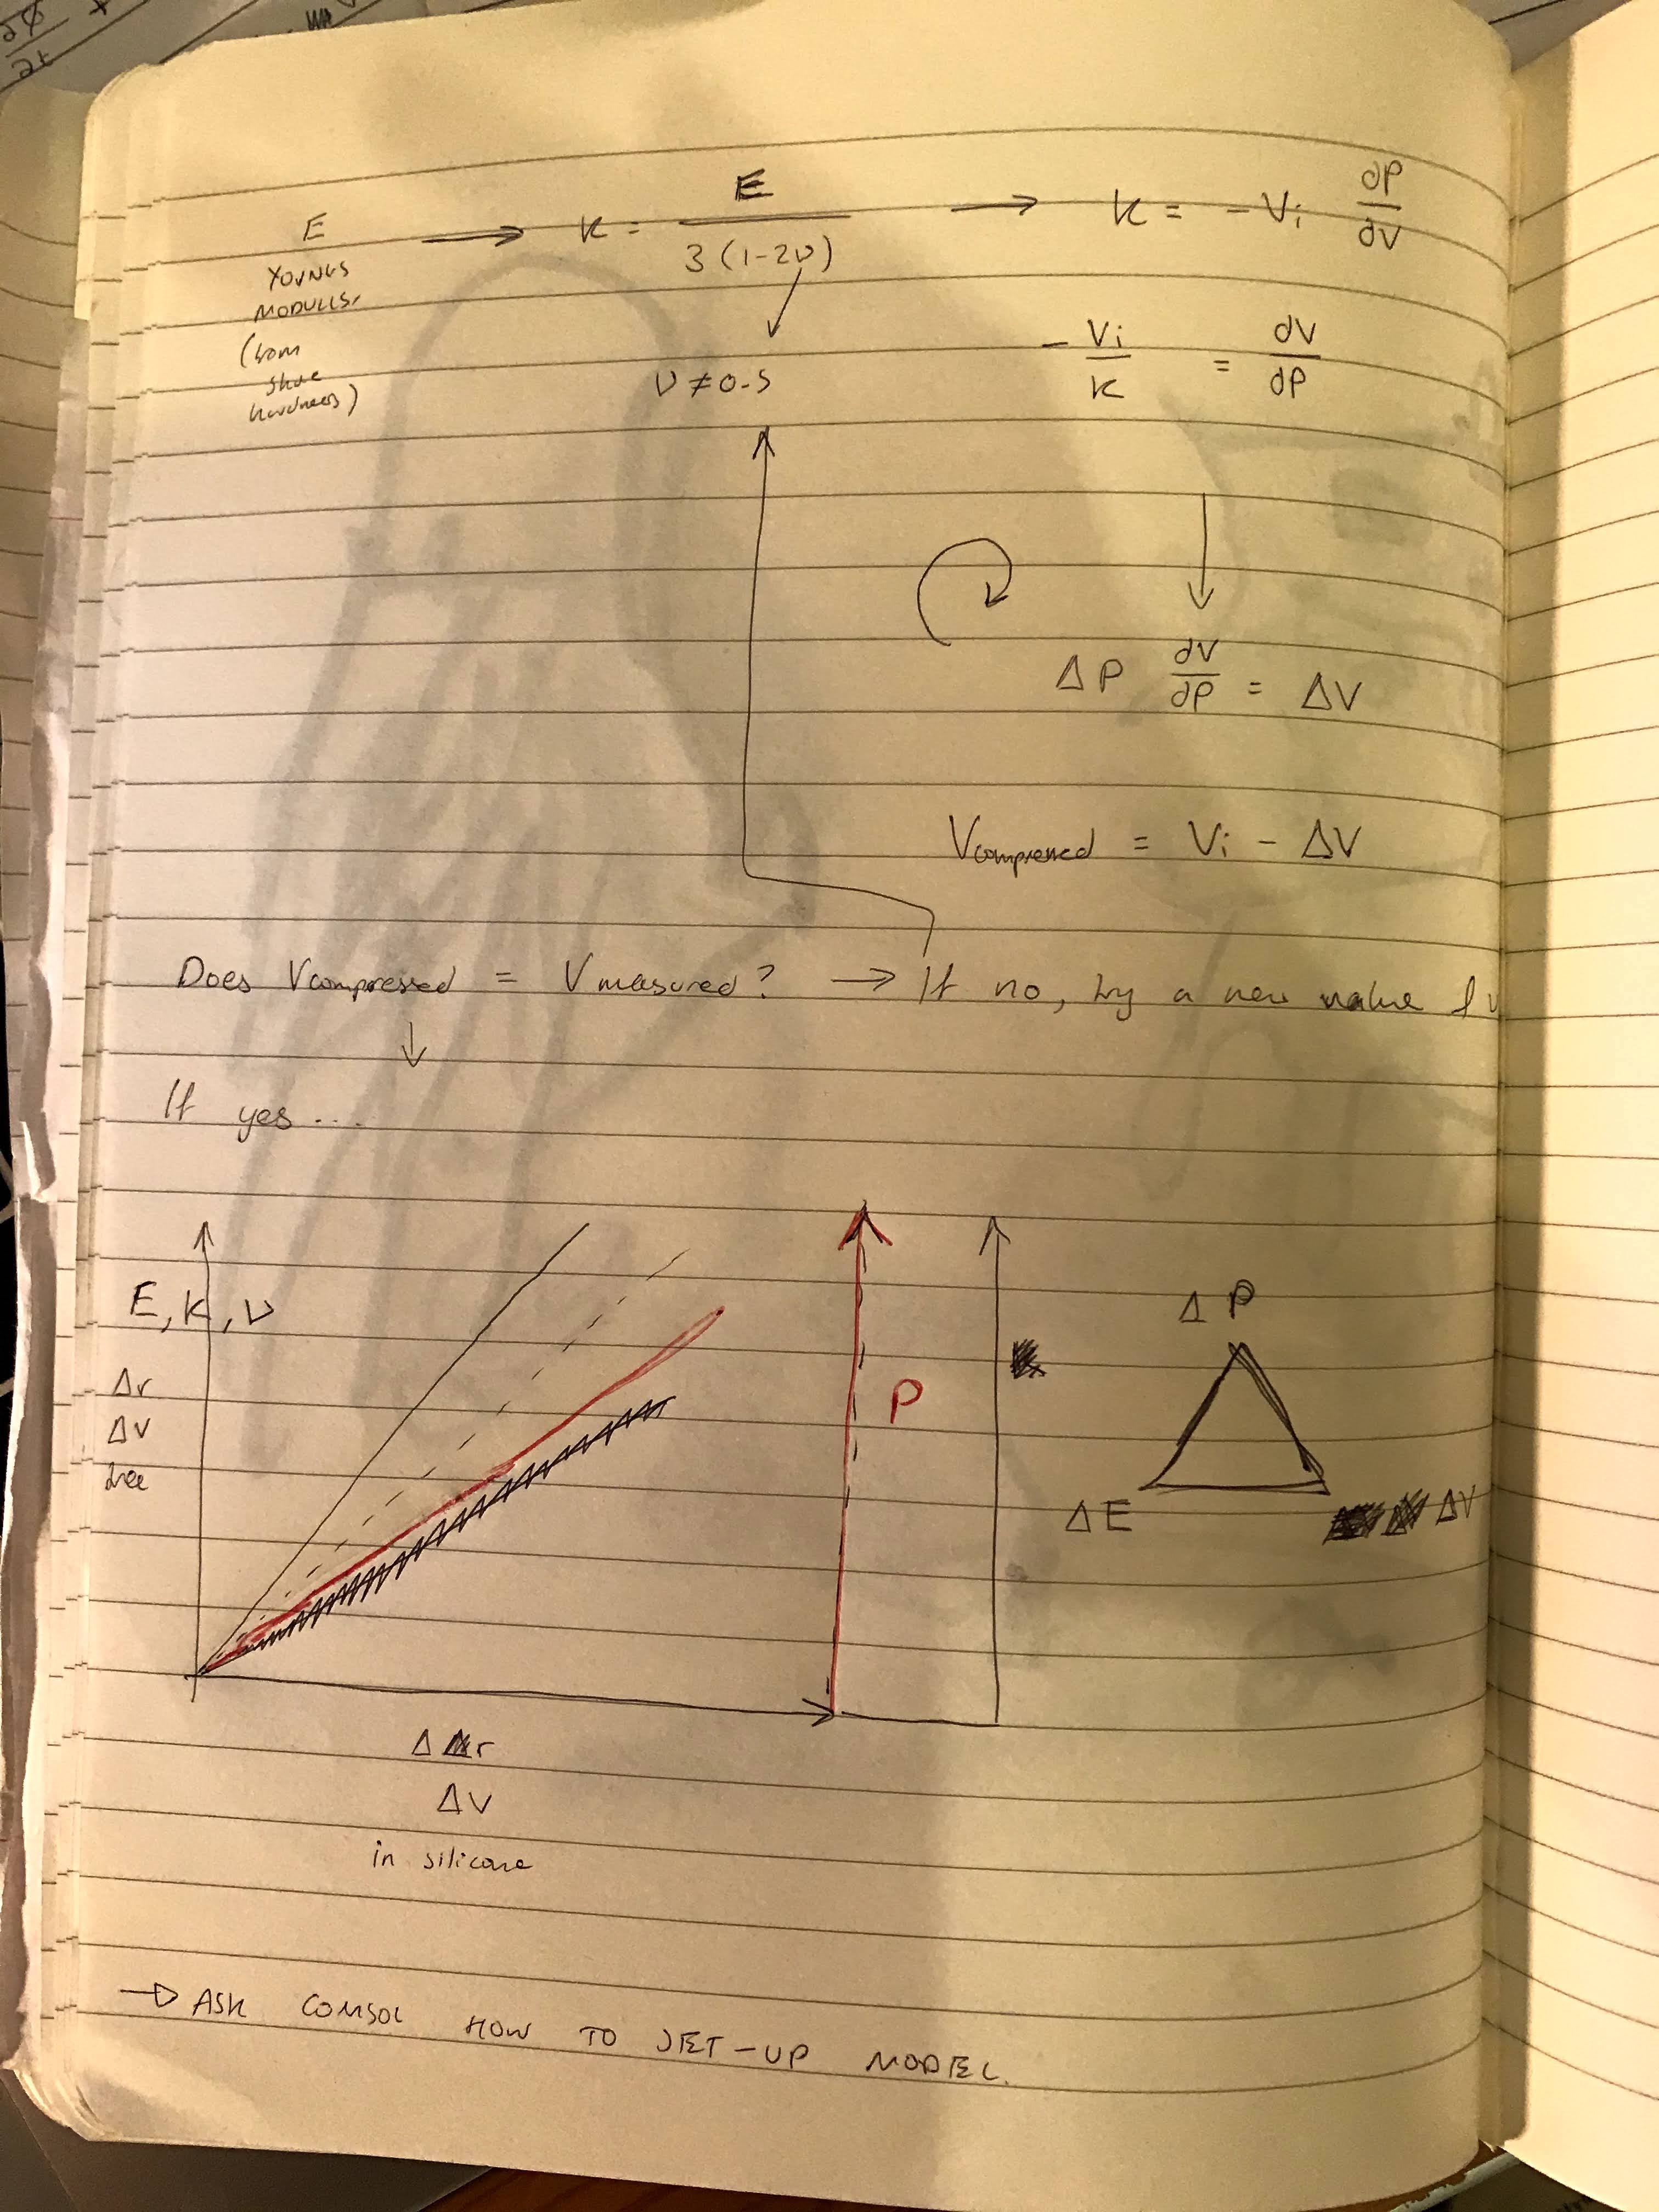 ∂Ø
∂t
E → K = E / 3(1-2ν) → K = -Vi ∂P/∂V
YOUNGS
MODULUS,
(from
shore
hardness)
ν ≠ 0.5
-Vi/K = ∂V/∂P
ΔP ∂V/∂P = ΔV
Vcompressed = Vi - ΔV
Does Vcompressed = Vmeasured? → If no, try a new value of ν
If yes ...
E, K, ν
Δr
ΔV
P
ΔP
ΔE
ΔV
Δ r
ΔV
in silicone
→ ASK COMSOL HOW TO SET-UP MODEL.